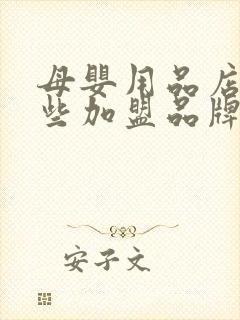 母嬰用品店
些加盟品牌
安子文